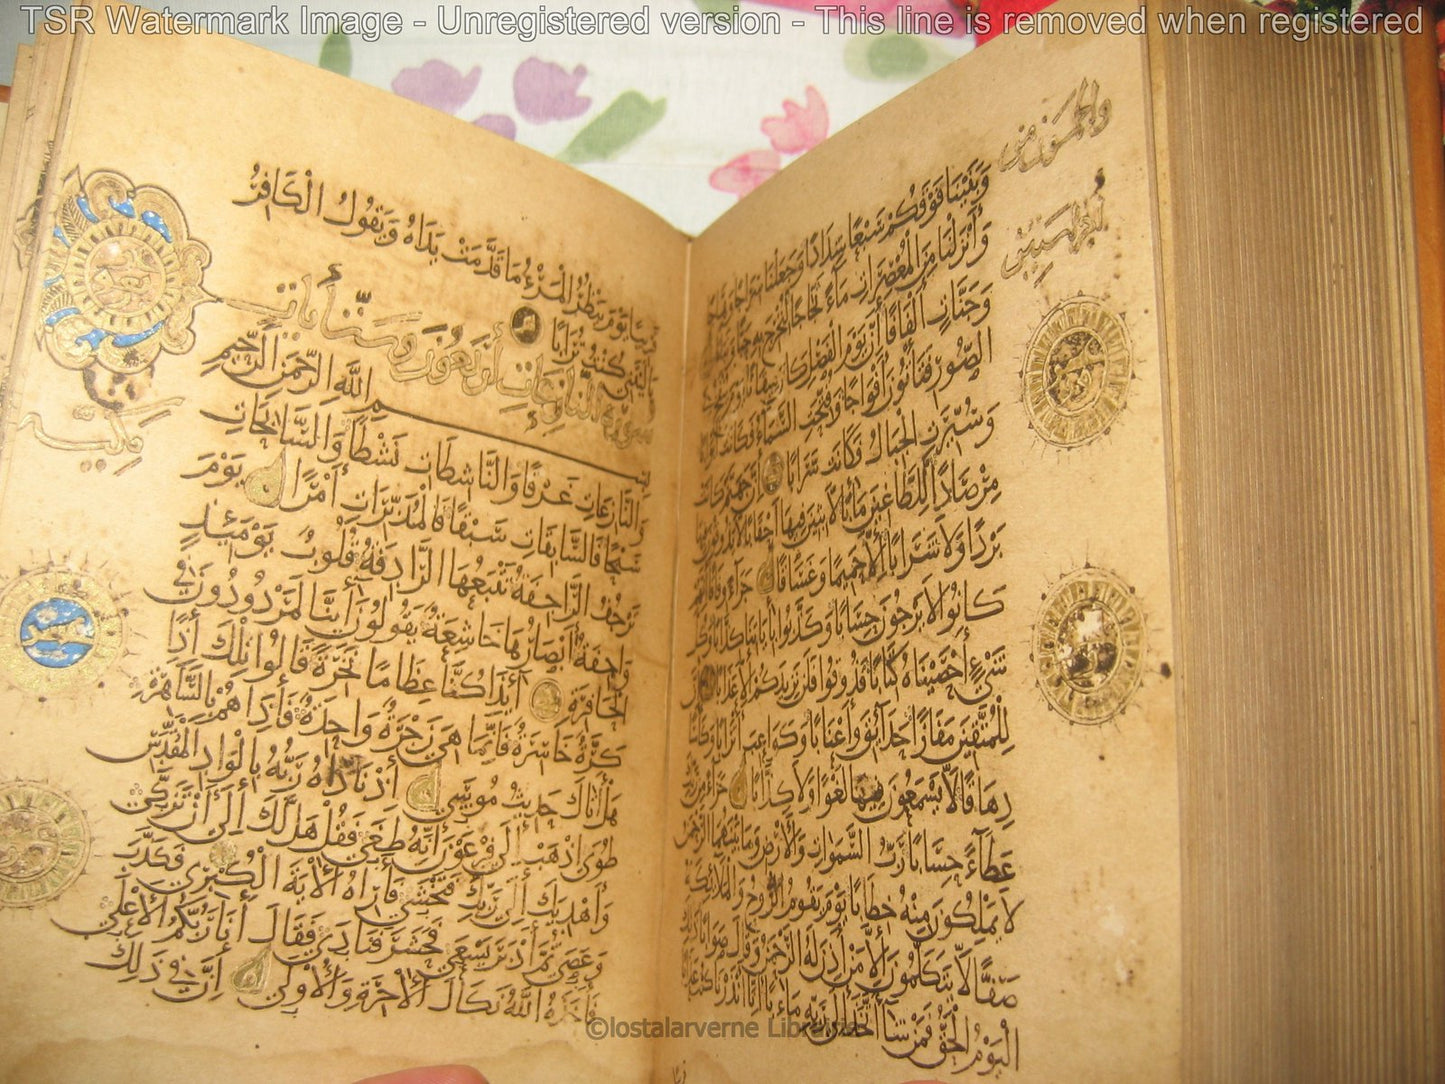 TSR Watermark Image - Unregistered version - This line is removed when registered
وَبَنَيْنَا فَوْقَكُمْ سَبْعًا شِدَادًا وَجَعَلْنَا سِرَاجًا
وَأَنْزَلْنَا مِنَ الْمُعْصِرَاتِ مَاءً ثَجَّاجًا لِنُخْرِجَ بِهِ حَبًّا
وَجَنَّاتٍ أَلْفَافًا إِنَّ يَوْمَ الْفَصْلِ كَانَ مِيقَاتًا يَوْمَ
الصُّورِ فَتَأْتُونَ أَفْوَاجًا وَفُتِحَتِ السَّمَاءُ فَكَانَتْ
وَسُيِّرَتِ الْجِبَالُ فَكَانَتْ سَرَابًا إِنَّ جَهَنَّمَ كَانَتْ
مِرْصَادًا لِلطَّاغِينَ مَآبًا لَابِثِينَ فِيهَا أَحْقَابًا لَا يَذُوقُونَ
بَرْدًا وَلَا شَرَابًا إِلَّا حَمِيمًا وَغَسَّاقًا جَزَاءً وِفَاقًا
كَانُوا لَا يَرْجُونَ حِسَابًا وَكَذَّبُوا بِآيَاتِنَا كِذَّابًا وَكُلَّ
شَيْءٍ أَحْصَيْنَاهُ كِتَابًا فَذُوقُوا فَلَنْ نَزِيدَكُمْ إِلَّا عَذَابًا
لِلْمُتَّقِينَ مَفَازًا حَدَائِقَ وَأَعْنَابًا وَكَوَاعِبَ أَتْرَابًا وَكَأْسًا
دِهَاقًا لَا يَسْمَعُونَ فِيهَا لَغْوًا وَلَا كِذَّابًا جَزَاءً مِنْ
عَطَاءً حِسَابًا رَبِّ السَّمَوَاتِ وَالْأَرْضِ وَمَا بَيْنَهُمَا الرَّحْمَنِ
لَا يَمْلِكُونَ مِنْهُ خِطَابًا يَوْمَ يَقُومُ الرُّوحُ وَالْمَلَائِكَةُ
صَفًّا لَا يَتَكَلَّمُونَ إِلَّا مَنْ أَذِنَ لَهُ الرَّحْمَنُ وَقَالَ صَوَابًا ذَلِكَ
الْيَوْمُ الْحَقُّ فَمَنْ شَاءَ اتَّخَذَ إِلَى رَبِّهِ مَآبًا إِنَّا أَنْذَرْنَاكُمْ عَذَابًا
قَرِيبًا يَوْمَ يَنْظُرُ الْمَرْءُ مَا قَدَّمَتْ يَدَاهُ وَيَقُولُ الْكَافِرُ
يَا لَيْتَنِي كُنْتُ تُرَابًا
سورة النازعات أربعون وست آيات
بِسْمِ اللَّهِ الرَّحْمَنِ الرَّحِيمِ
مكية
وَالنَّازِعَاتِ غَرْقًا وَالنَّاشِطَاتِ نَشْطًا وَالسَّابِحَاتِ
سَبْحًا فَالسَّابِقَاتِ سَبْقًا فَالْمُدَبِّرَاتِ أَمْرًا يَوْمَ
تَرْجُفُ الرَّاجِفَةُ تَتْبَعُهَا الرَّادِفَةُ قُلُوبٌ يَوْمَئِذٍ
وَاجِفَةٌ أَبْصَارُهَا خَاشِعَةٌ يَقُولُونَ أَئِنَّا لَمَرْدُودُونَ فِي
الْحَافِرَةِ أَئِذَا كُنَّا عِظَامًا نَخِرَةً قَالُوا تِلْكَ إِذًا
كَرَّةٌ خَاسِرَةٌ فَإِنَّمَا هِيَ زَجْرَةٌ وَاحِدَةٌ فَإِذَا هُمْ بِالسَّاهِرَةِ
هَلْ أَتَاكَ حَدِيثُ مُوسَى إِذْ نَادَاهُ رَبُّهُ بِالْوَادِ الْمُقَدَّسِ
طُوًى اذْهَبْ إِلَى فِرْعَوْنَ إِنَّهُ طَغَى فَقُلْ هَلْ لَكَ إِلَى أَنْ تَزَكَّى
وَأَهْدِيَكَ إِلَى رَبِّكَ فَتَخْشَى فَأَرَاهُ الْآيَةَ الْكُبْرَى فَكَذَّبَ
وَعَصَى ثُمَّ أَدْبَرَ يَسْعَى فَحَشَرَ فَنَادَى فَقَالَ أَنَا رَبُّكُمُ الْأَعْلَى
فَأَخَذَهُ اللَّهُ نَكَالَ الْآخِرَةِ وَالْأُولَى إِنَّ فِي ذَلِكَ